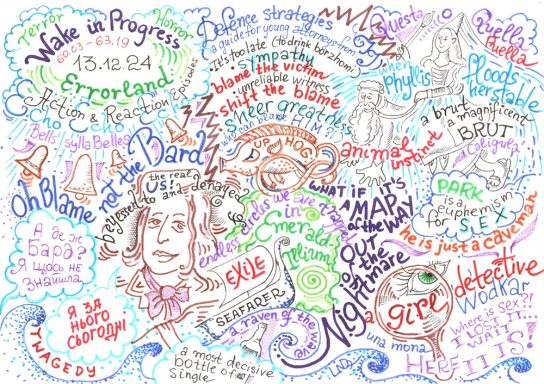 Terror
Horror
Wake in Progress
60.03 – 63.19
13.12.24
Errorland
Action & Reaction Episodes
Echo Echo Echo
Bells
sylla Belles
oh Blame
not the Bard?
Defence strategies
a guide for young attorneys from
it's too late (to drink borzhomi)
sympathy
blame the victim
unreliable witness
shift the blame
sheer greatness
who can blame HIM?!
UP
HOG
Questa
Quella
Puella
when
Phyllis
floods
her stable
animal
instinct
a brut
a magnificent
BRUT
Caligula
PARK
is a
euphemism
for SLEX
he is just a caveman
the real
US!
begessed to and denaged of
endless circles we are trapped
in
Emerald
Illiums
WHAT IF IT'S
A MAP
OF THE WAY
OUT
OF THE
Nightmare
А де ж
Бард?
Я щось не
знайшла
Я ЗА
НЬОГО
СЬОГОДНІ
TWAGEDY
EXILE
SEAFARER
a raven of the wave
a most decisive
bottle of
single
LADY
una mona
a gire
detective
Wodkar
Where is sex?!
I LOST IT
WAIT
HERE IT IS!